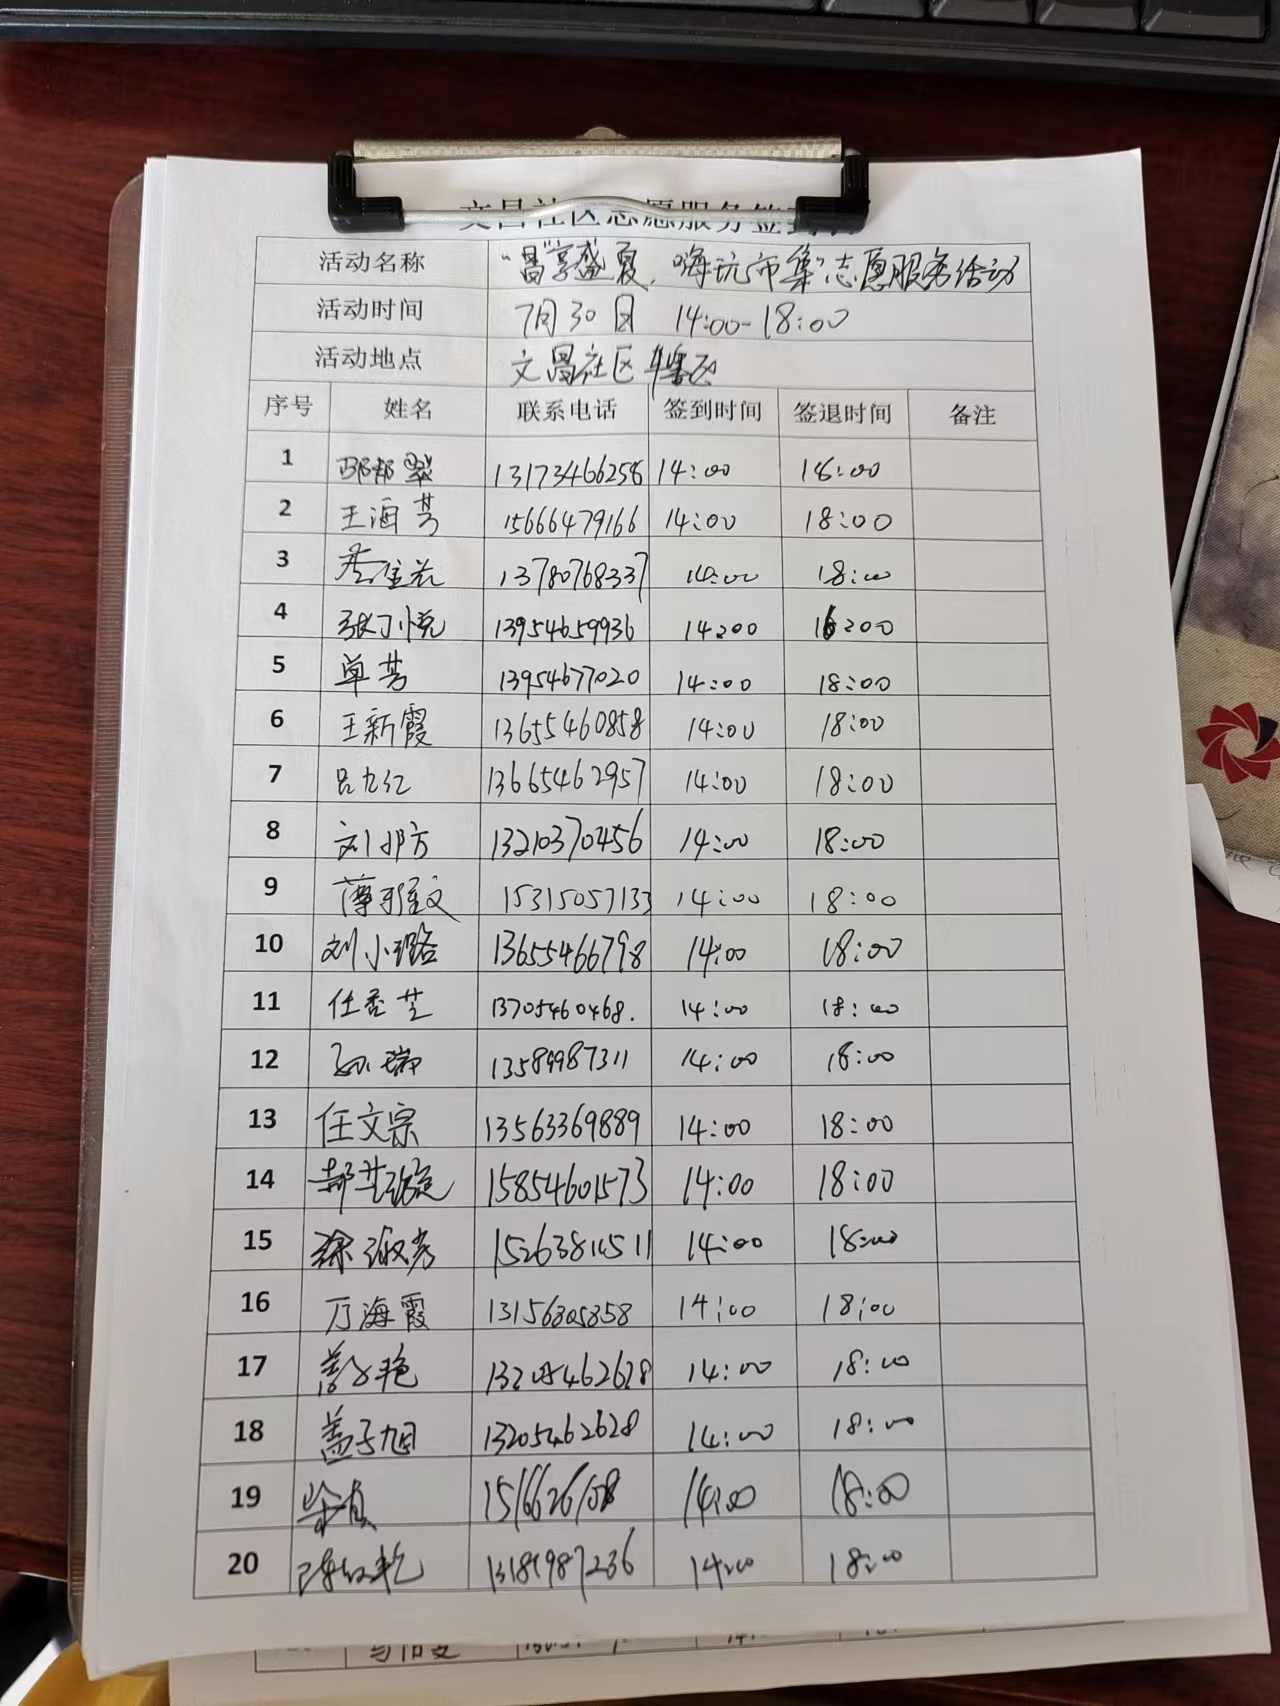 文昌社区志愿服务签到
活动名称 "昌享盛夏，嗨玩市集"志愿服务活动
活动时间 7月30日 14:00-18:00
活动地点 文昌社区辖区
序号 姓名 联系电话 签到时间 签退时间 备注
1 13173466258 14:00 18:00
2 王海芳 15666479166 14:00 18:00
3 13780768337 14:00 18:00
4 张丁悦 13954659936 14:00 18:00
5 单芳 13954677020 14:00 18:00
6 王新霞 13655460858 14:00 18:00
7 吕九红 13665462957 14:00 18:00
8 刘邦方 13210370456 14:00 18:00
9 薄雅文 15315057133 14:00 18:00
10 刘小璐 13655466798 14:00 18:00
11 任香芝 13705460468. 14:00 18:00
12 孙瑞 13589987311 14:00 18:00
13 任文宗 13563369889 14:00 18:00
14 15854601573 14:00 18:00
15 徐淑秀 14:00 18:00
16 万海霞 13156805858 14:00 18:00
17 13205462628 14:00 18:00
18 盖子旭 13205462628 14:00 18:00
19 14:00 18:00
20 13181987236 14:00 18:00